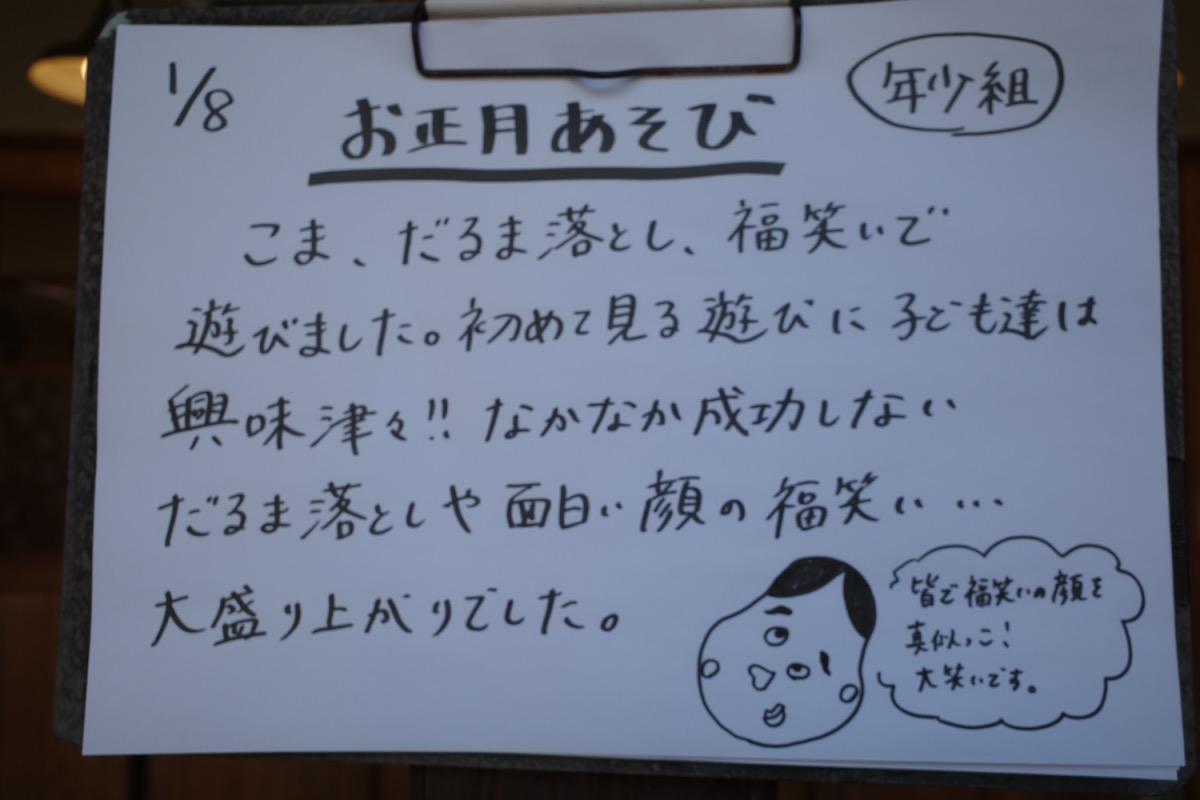 1/8
年少組
お正月あそび
こま、だるま落とし、福笑いで
遊びました。初めて見る遊びに子ども達は
興味津々!!なかなか成功しない
だるま落としや面白い顔の福笑い…
大盛り上がりでした。
皆で福笑いの顔を
真似っこ!
大笑いです。